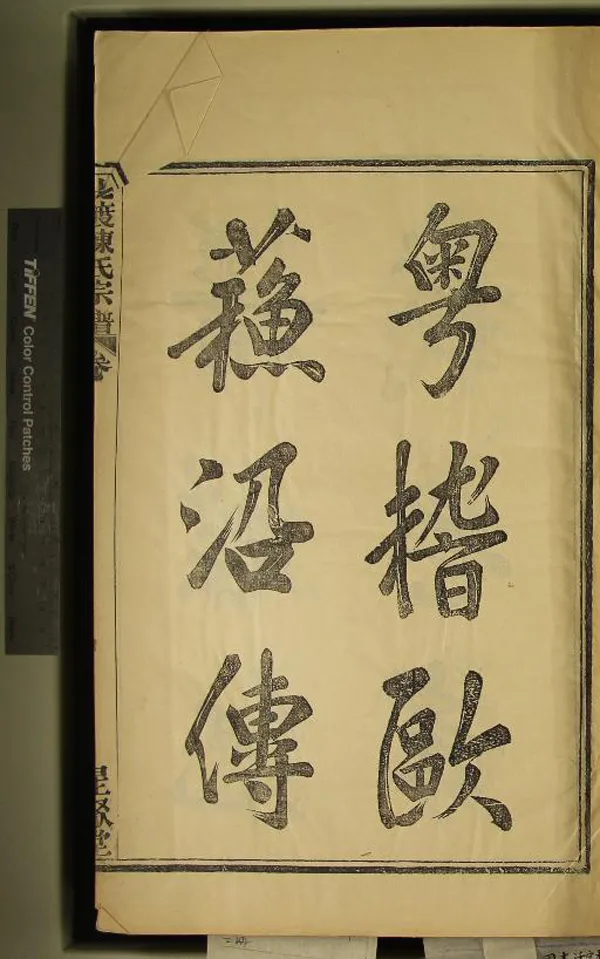 粤稽歐
蘓沿傳
陳氏宗譜
TIFFEN Color Control Patches